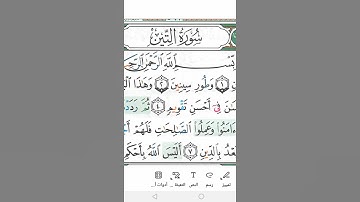 سُورَةُ التِّينِ
بِسْمِ اللَّهِ الرَّحْمَٰنِ الرَّحِ
١ وَطُورِ سِينِينَ ٢ وَهَٰذَا الْبَ
فِي أَحْسَنِ تَقْوِيمٍ ٤ ثُمَّ رَدَدْ
ءَامَنُوا وَعَمِلُوا الصَّالِحَاتِ فَلَهُمْ
بَعْدُ بِالدِّينِ ٧ أَلَيْسَ اللَّهُ بِأَحْكَمِ
تمييز
رسم
النص
أدوات أ...